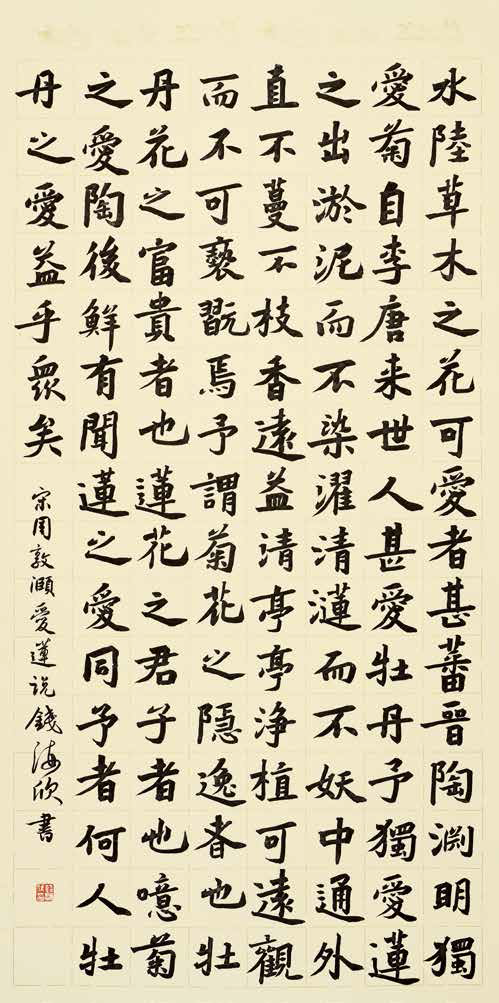 水陸草木之花可愛者甚蕃晉陶淵明獨
愛菊自李唐来世人甚愛牡丹予獨愛蓮
之出淤泥而不染濯清漣而不妖中通外
直不蔓不枝香遠益清亭亭浄植可遠觀
而不可褻翫焉予謂菊花之隱逸者也牡
丹花之富貴者也蓮花之君子者也噫菊
之愛陶後鮮有聞蓮之愛同予者何人牡
丹之愛益乎眾矣
宗周敦頤愛蓮说錢海欣書